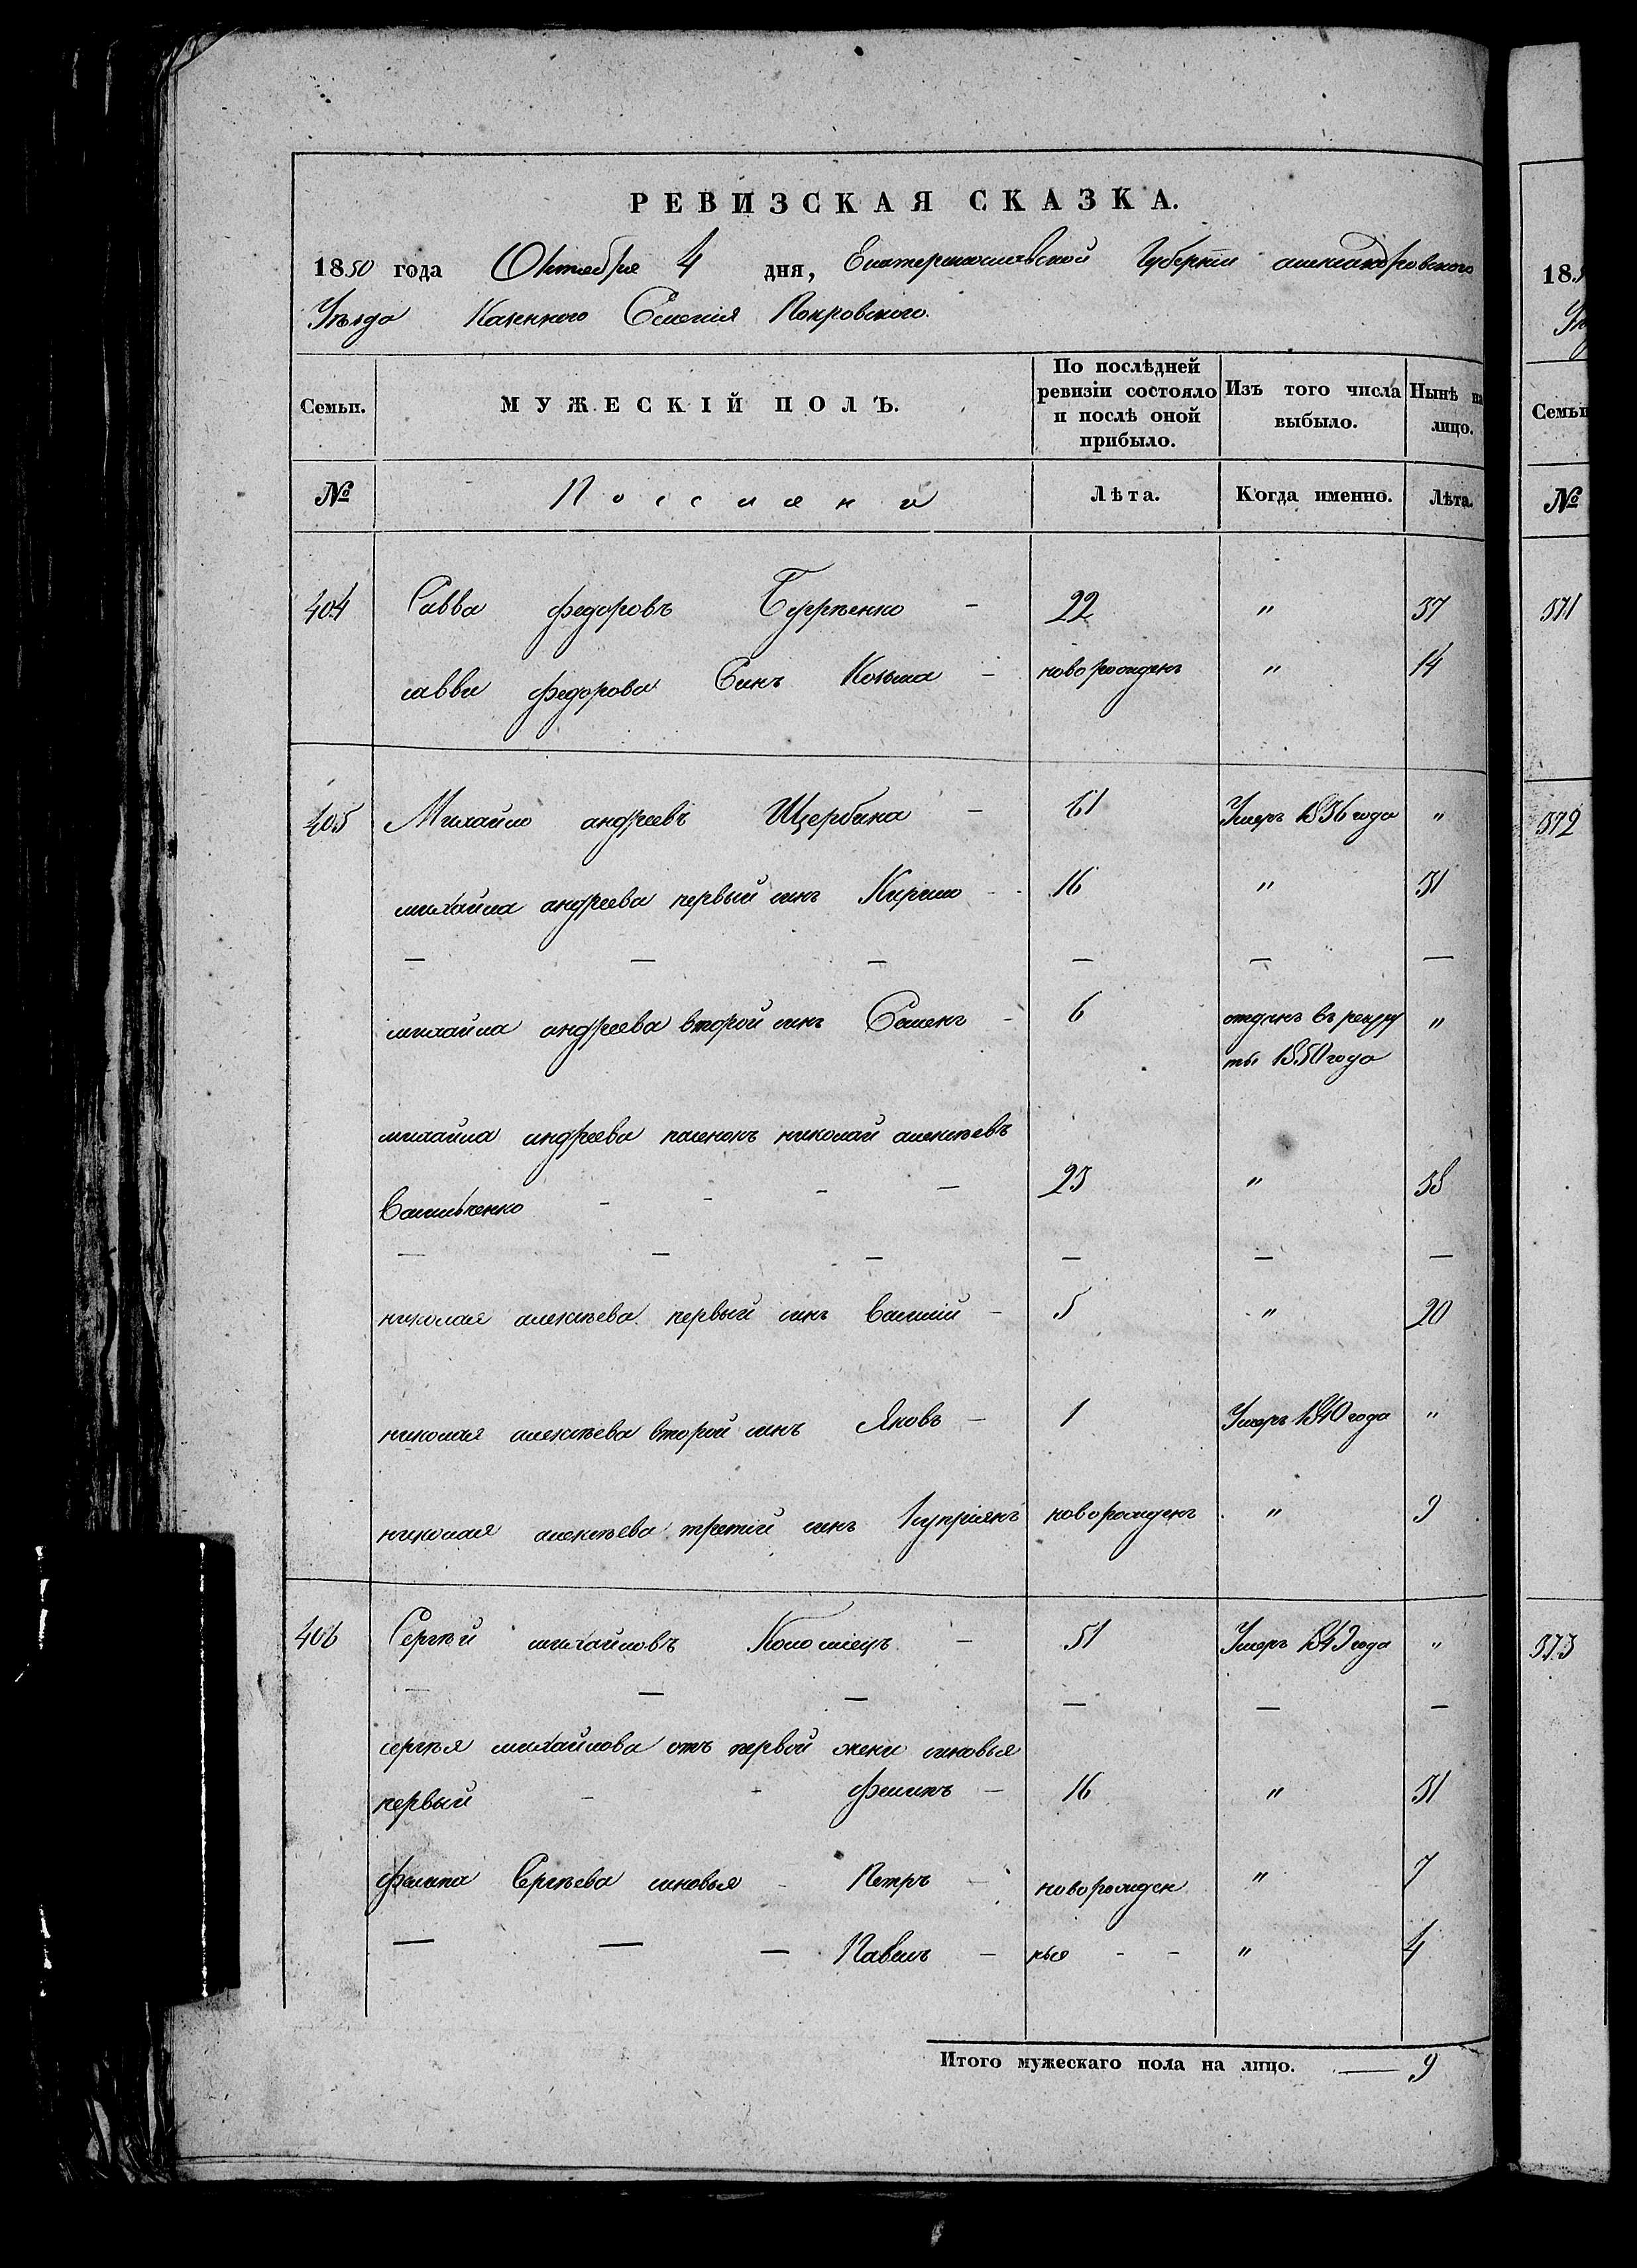 РЕВИЗСКАЯ СКАЗКА.
1850 года Октября 4 дня, Екатеринославской Губерніи александровского
Уѣзда Казенного Селенія Покровского.
Семьи. МУЖЕСКІЙ ПОЛЪ. По послѣдней ревизіи состояло и послѣ оной прибыло. Изъ того числа выбыло. Нынѣ на лицо.
№ Поселяни Лѣта. Когда именно. Лѣта.
404 Савва федоровъ - 22 " 37
саввы федорова Синъ Козьма - новорожденъ " 14
405 Михайло андреевъ Щербина - 61 Умеръ 1836 года "
михайла андреева первый синъ Кирило - 16 " 31
— — — — — —
михайла андреева второй синъ Семенъ - 6 отданъ въ рекру "
ты 1850 года
михайла андреева пасенокъ николай алексѣевъ
Василченко - - - - 23 " 38
— — — — — —
николая алексѣева первый синъ василій - 5 " 20
николая алексѣева второй синъ Яковъ - 1 Умеръ 1840 года "
николая алексѣева третій синъ Купріянъ новорожденъ " 9
406 Сергѣй михайловъ Коломіецъ - 51 Умеръ 1849 года "
— — — — — —
сергѣя михайлова отъ первой жени синовья
первый - - филипъ - 16 " 31
филипа Сергѣева синовья - Петръ - новорожден " 7
— — — Павелъ - ные - - " 4
Итого мужескаго пола на лицо. — 9
185
Уѣ
Семьи
№
571
572
573